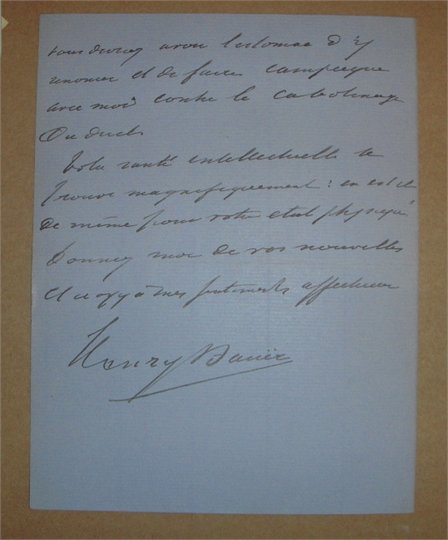 vous devriez avoir l'estomac d'y
renoncer et de faire campagne
avec moi contre le cabotinage
Votre santé intellectuelle se
trouve magnifiquement : en est il
de même pour votre état physique
Donnez moi de vos nouvelles
et croyez à mes sentiments affectueux
Henry Bauër